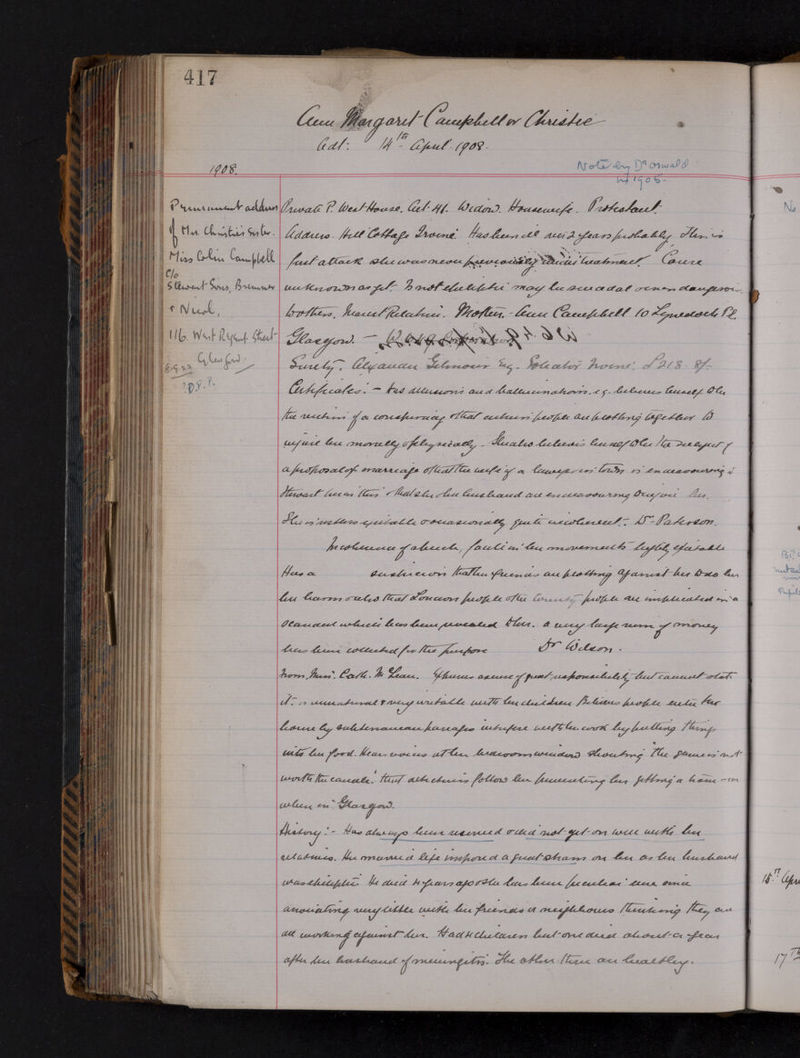 417
Ann Margaret Campbell or Christie
Adt: 14th April 1908.
1908.
Note by Dr Oswald
in 1908.
Permanent address
of Mrs Christie's sister.
Miss Colin Campbell
c/o
Stewart Sons, Bremner
& Nual,
116 West Regent Street
Glasgow.
Private P. West House. Aet. 41. Widow. Housewife. Protestant.
Address. Hill Cottage Irvine Has been ill over 2 years probably This is
first attack she was never previously under treatment Cause
unknown as yet. Is not epileptic may be suicidal or even dangerous
to others. Nearest Relative. Mother. Ann Campbell 10 Lynedoch Pl.
Glasgow. -
Surety. Alexander Gilmour Esq. Solicitor Irvine. £218. 8/-
Certificates: - Has delusions and hallucinations, e.g. believes herself to be
the victim of a conspiracy & that certain people are plotting together to
injure her morally & physically. She also believes herself to be the subject of
a proposal of marriage & that the wife of a lawyer in town is endeavouring to
thwart her in this & that she & her husband are endeavouring to injure her.
She is restless excitable & occasionally quite incoherent. Dr. Paterson.
Incoherence of speech, in her movements highly excitable
Has a suspicion that her friends are plotting against her to do her
harm & also that London people & the County people are implicated in a
scandal which has been revealed to her. a very large sum of money
has been collected for the purpose Dr Wilson.
From Miss Cath. McLean. of great responsibility but cannot state
it. is unnatural & very irritable with her children Believes people enter her
house by subterranean passages interfere with her work by putting things
into her food. Hears voices at her bedroom window shouting "The game is not
worth the candle." that detectives follow her preventing her getting a house
when in Glasgow.
History: - Has always been reserved & did not get on well with her
relatives. Her married life imposed a great strain on her as her husband
was epileptic He died 4 years ago & she has been peculiar ever since
associating very little with her friends & neighbours thinking they are
all working against her. Had 4 children but one died about a year
after her husband of meningitis. The other three are healthy.
No
15th Apr
17th